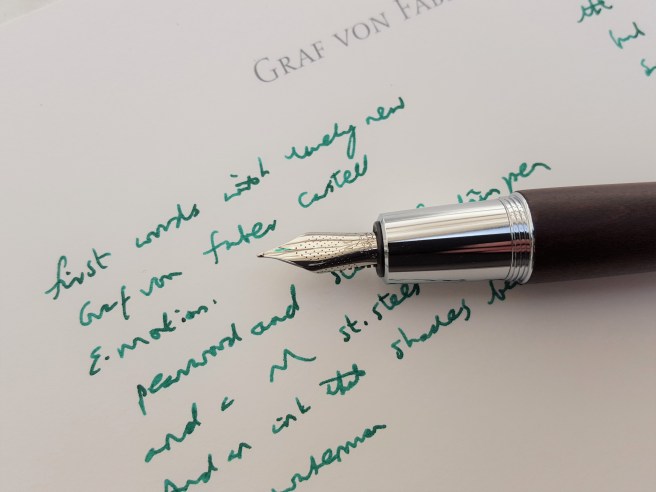 GRAF VON FAB
first words with lovely new
Graf von Faber Castell
E.motion.
pearwood and
pen
and a M st.steel
And an ink that shades
waterman
the
but